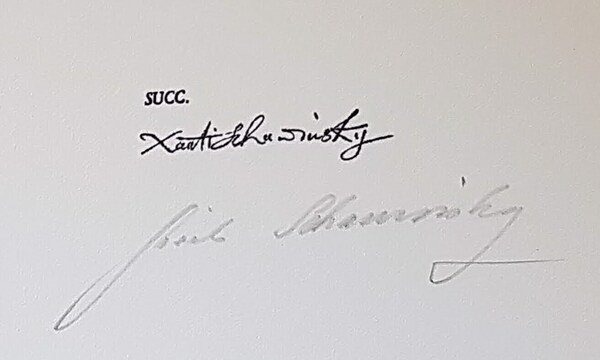 SUCC.
Xanti Schawinsky
Schawinsky